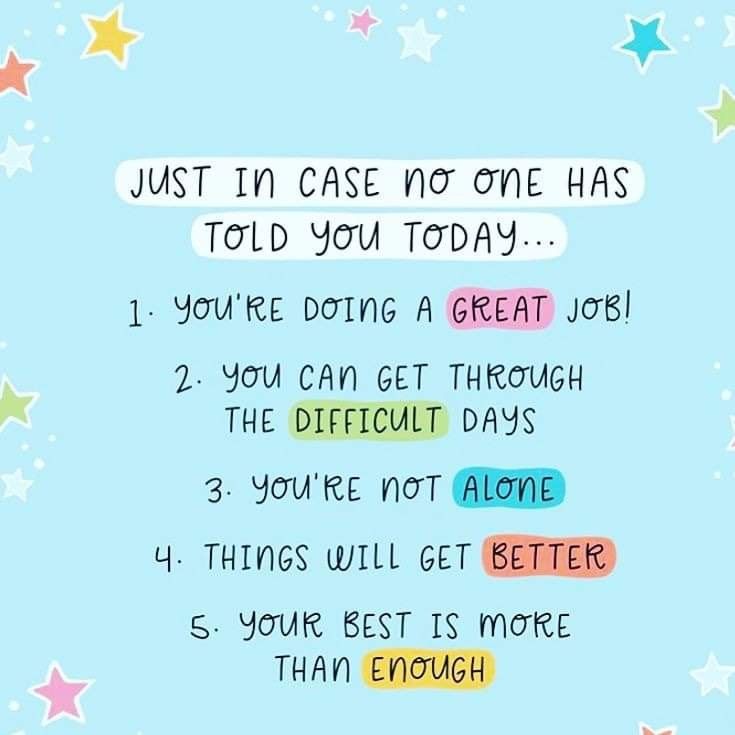 JUST IN CASE NO ONE HAS
TOLD YOU TODAY...
1. YOU'RE DOING A GREAT JOB!
2. YOU CAN GET THROUGH
THE DIFFICULT DAYS
3. YOU'RE NOT ALONE
4. THINGS WILL GET BETTER
5. YOUR BEST IS MORE
THAN ENOUGH